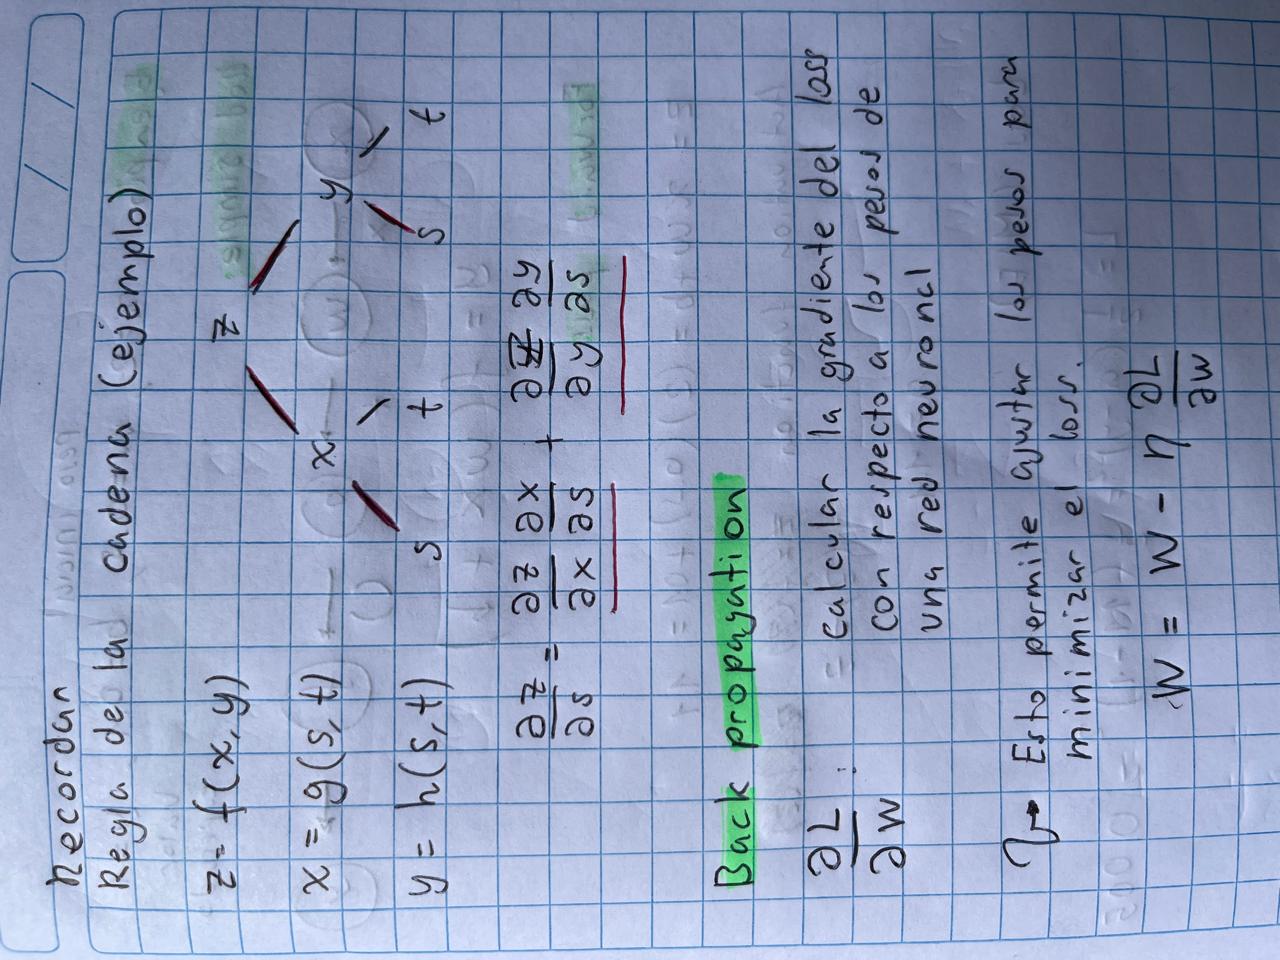 Recordar
Regla de la cadena (ejemplo)
z = f(x, y)
z
x = g(s, t)
x y
y = h(s, t)
s t s t
∂z/∂s = ∂z/∂x ∂x/∂s + ∂z/∂y ∂y/∂s
Back propagation
∂L/∂w : = calcular la gradiente del loss
con respecto a los pesos de
una red neuronal
↳ Esto permite ajustar los pesos para
minimizar el loss.
W = W - η ∂L/∂w